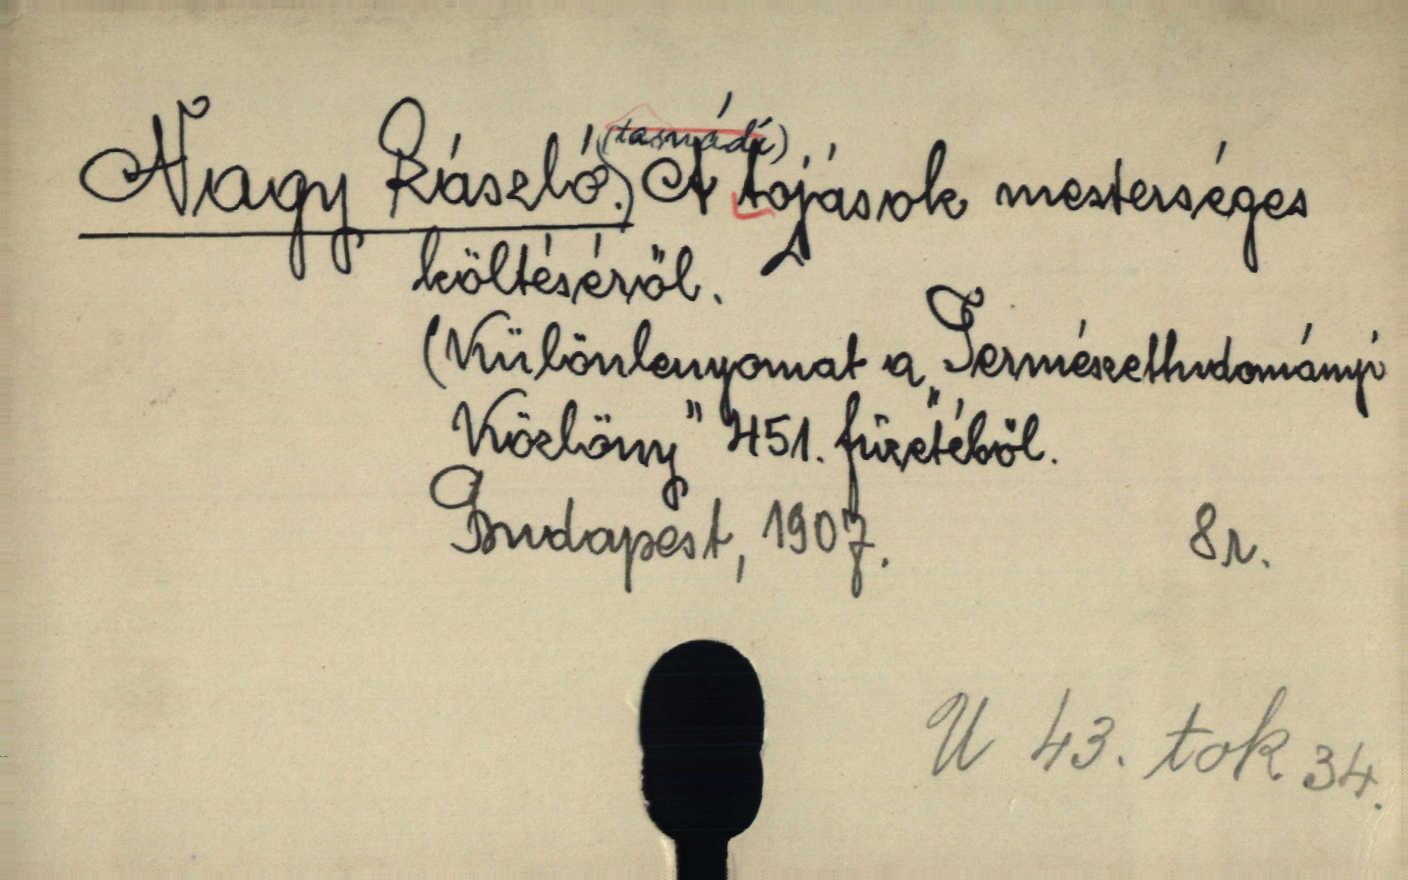 Nagy László (tasnádi) A tojások mesterséges
költéséről.
(Különlenyomat a „Természettudományi
Közlöny" 451. füzetéből.
Budapest, 1907. 8r.
U 43. tok 34.